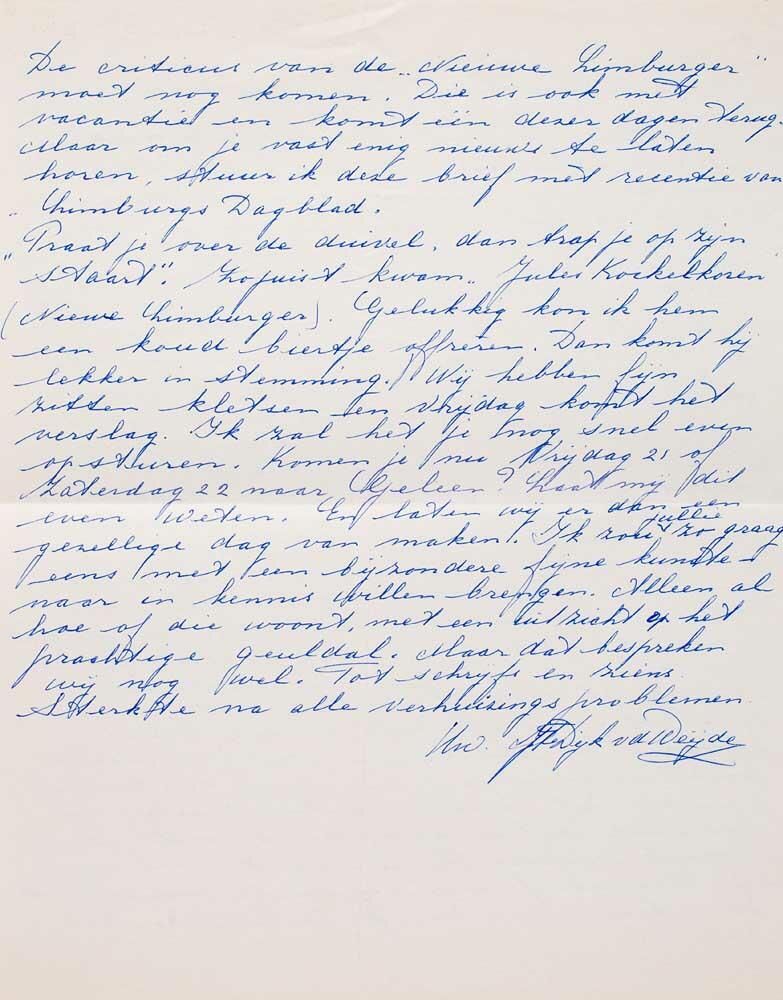 De criticus van de „Nieuwe Limburger"
moet nog komen. Die is ook met
vacantie en komt één dezer dagen terug.
Maar om je vast enig nieuws te laten
horen, stuur ik deze brief met recentie van
„Limburgs Dagblad.
„Praat je over de duivel, dan trap je op zijn
staart". Zojuist kwam „Jules Kockelkoren
(Nieuwe Limburger). Gelukkig kon ik hem
een koud biertje offreren. Dan komt hij
lekker in stemming. Wij hebben fijn
zitten kletsen en Vrijdag komt het
verslag. Ik zal het je nog snel even
opsturen. Komen je nu Vrijdag 21 of
Zaterdag 22 naar Geleen? Laat mij dit
even weten. En laten wij er dan een
gezellige dag van maken. Ik zou jullie zo graag
eens met een bijzondere fijne kunste-
naar in kennis willen brengen. Alleen al
hoe of die woont, met een uitzicht op het
prachtige geuldal. Maar dat bespreken
wij nog wel. Tot schrijfs en ziens
Sterkte na alle verhuizingsproblemen
Uw. Dijk vd Weijde